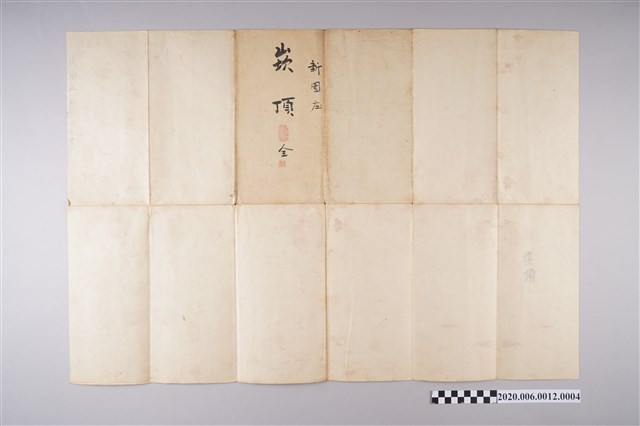 新園庄
崁頂
全
2020.006.0012.0004